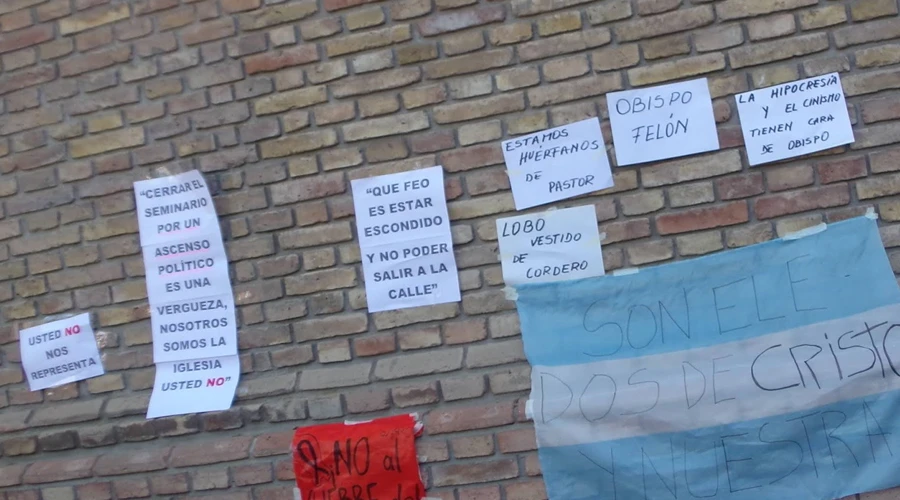 USTED NO
NOS
REPRESENTA
“CERRAR EL
SEMINARIO
POR UN
ASCENSO
POLÍTICO
ES UNA
VERGUEZA,
NOSOTROS
SOMOS LA
IGLESIA
USTED NO”
“QUE FEO
ES ESTAR
ESCONDIDO
Y NO PODER
SALIR A LA
CALLE”
ESTAMOS
HUÉRFANOS
DE
PASTOR
OBISPO
FELÓN
LA HIPOCRESIA
Y EL CINISMO
TIENEN CARA
DE OBISPO
LOBO
VESTIDO
DE
CORDERO
¡NO al
CIERRE del
SON ELE-
DOS DE CRISTO
Y NUESTRA